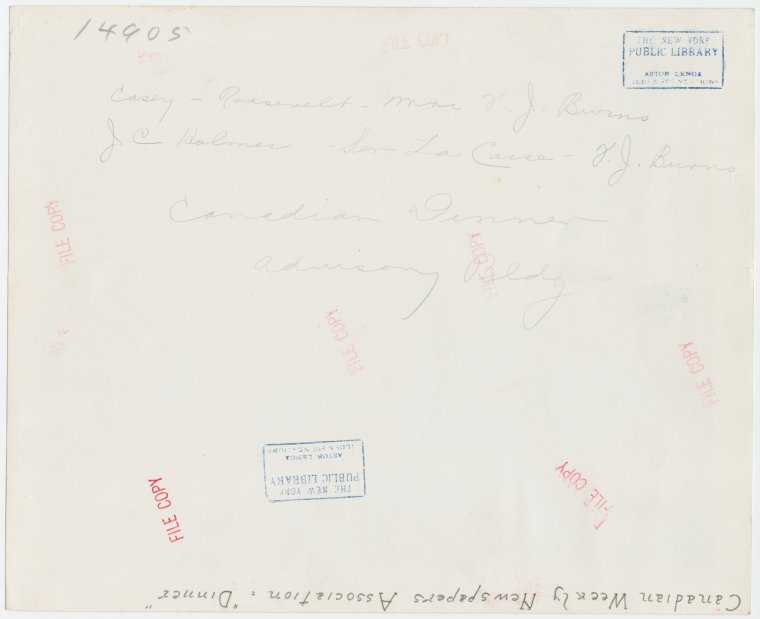 14905
FILE COPY
THE NEW YORK
PUBLIC LIBRARY
ASTOR LENOX
TILDEN FOUNDATIONS
Casey - Roosevelt - Mrs V. J. Burns
J C Holmes - Sen La Casse - V. J. Burns
Canadian Dinner
Advisory Bldg
FILE COPY
FILE COPY
FILE COPY
FILE COPY
FILE COPY
FILE COPY
THE NEW YORK
PUBLIC LIBRARY
ASTOR LENOX
TILDEN FOUNDATIONS
Canadian Weekly Newspapers Association = "Dinner"